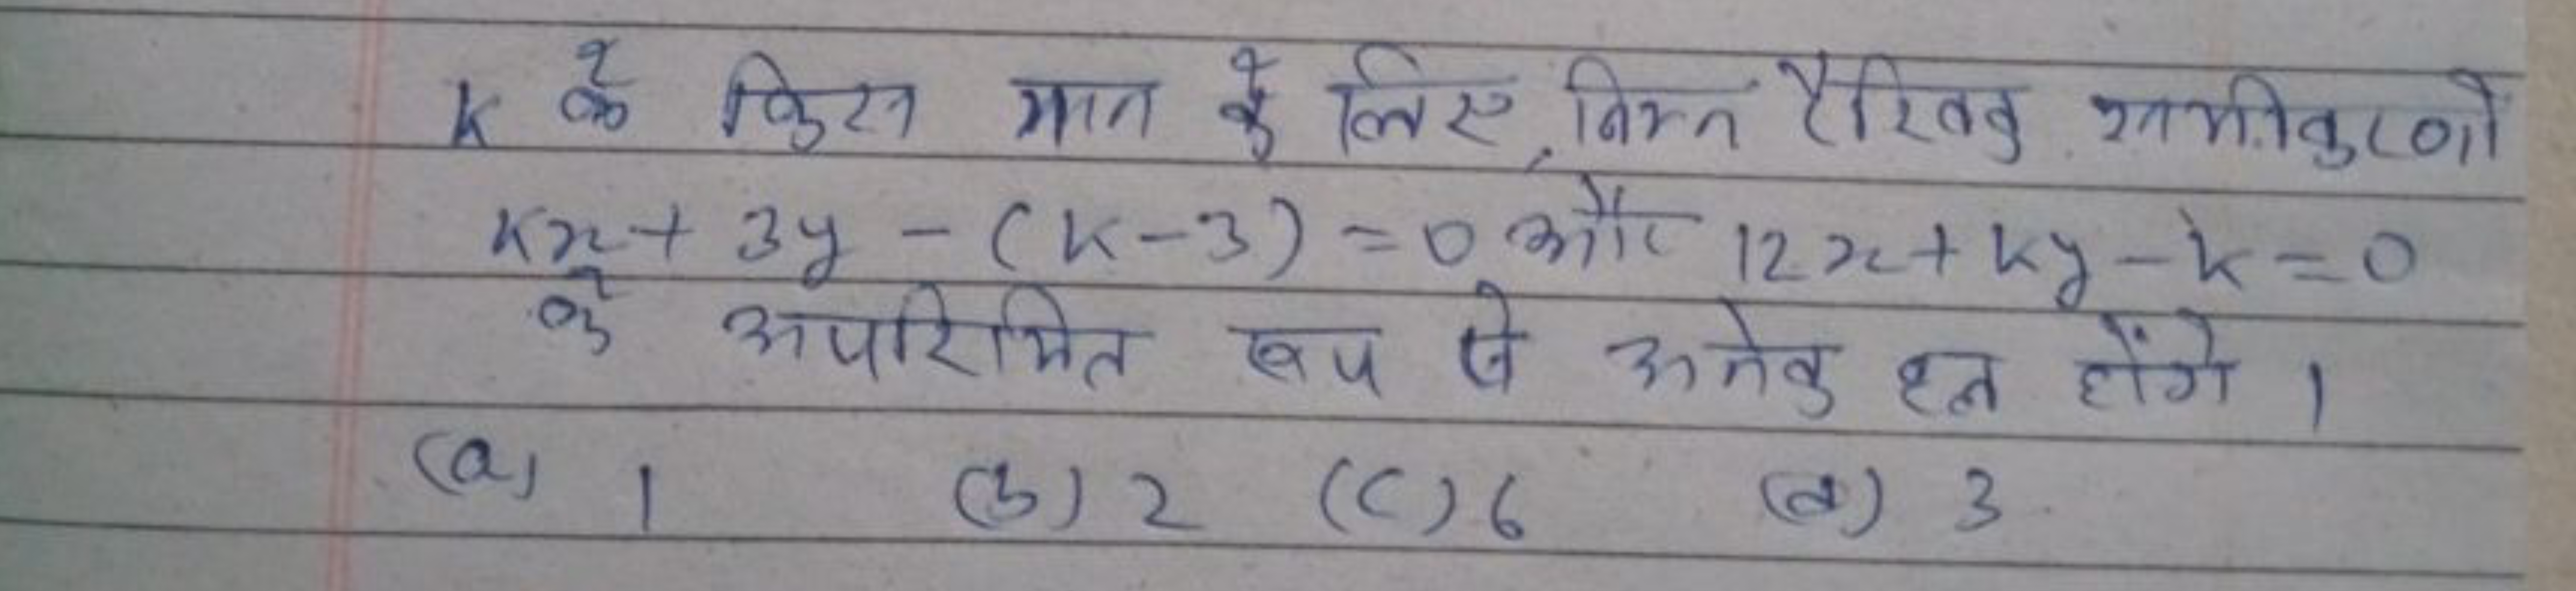 k के किस मान के लिए, निम्न रैखिक समीकरणों
kx + 3y - (k-3) = 0 और 12x + ky - k = 0
के अपरिमित रूप से अनेक हल होंगे ।
(a) 1 (b) 2 (c) 6 (d) 3